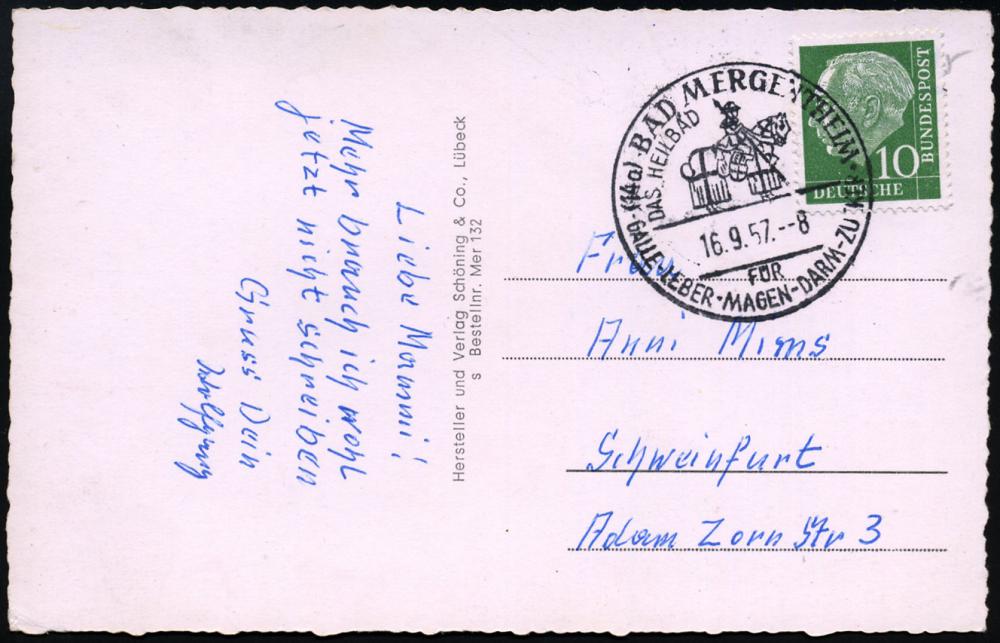 Liebe Mammi!
Mehr brauch ich wohl
jetzt nicht schreiben
Gruss Dein
Wolfgang
Hersteller und Verlag Schöning & Co., Lübeck
s Bestellnr. Mer 132
(14a) BAD MERGENTHEIM
DAS HEILBAD
16.9.57.--8
FÜR
GALLE-LEBER-MAGEN-DARM-ZUCKER
10
DEUTSCHE
BUNDESPOST
Frau
Anni Mims
Schweinfurt
Adam Zorn Str 3